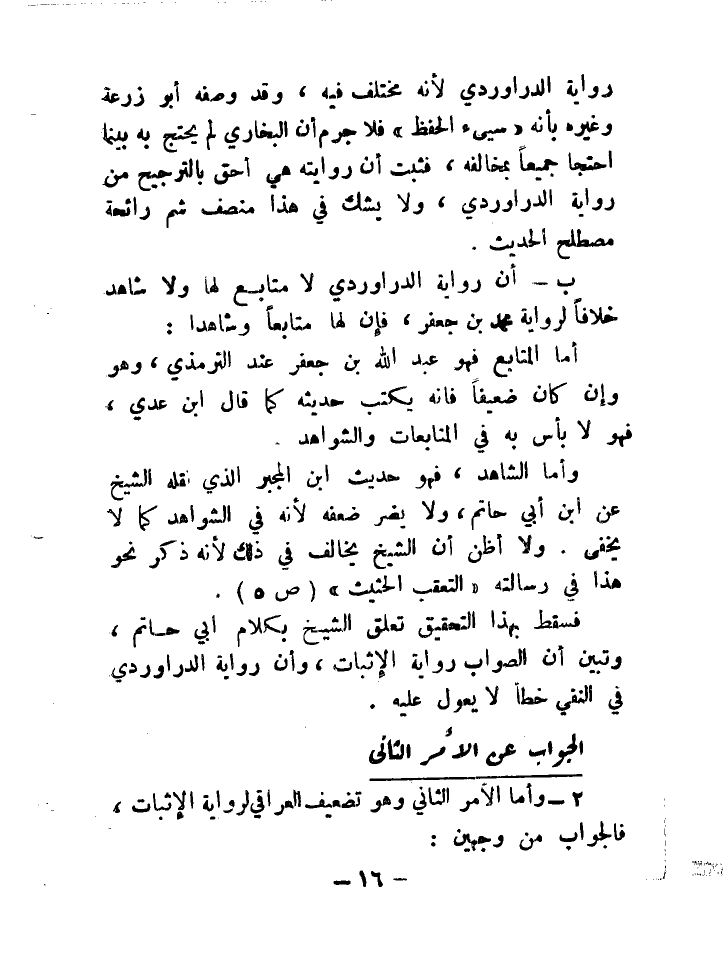 رواية الدراوردي لأنه مختلف فيه ، وقد وصفه أبو زرعة
وغيره بأنه « سيىء الحفظ » فلا جرم أن البخاري لم يحتج به بينما
احتجا جميعاً بمخالفه ، فثبت أن روايته هي أحق بالترجيح من
رواية الدراوردي ، ولا يشك في هذا منصف شم رائحة
مصطلح الحديث .
ب – أن رواية الدراوردي لا متابع لها ولا شاهد
خلافاً لرواية محمد بن جعفر ، فإن لها متابعاً وشاهدا :
أما المتابع فهو عبد الله بن جعفر عند الترمذي ، وهو
وإن كان ضعيفاً فانه يكتب حديثه كما قال ابن عدي ،
فهو لا بأس به في المتابعات والشواهد .
وأما الشاهد ، فهو حديث ابن المجبر الذي نقله الشيخ
عن ابن أبي حاتم ، ولا يضر ضعفه لأنه في الشواهد كما لا
يخفى . ولا أظن أن الشيخ يخالف في ذلك لأنه ذكر نحو
هذا في رسالته « التعقب الحثيث » ( ص ٥ ) .
فسقط بهذا التحقيق تعلق الشيخ بكلام ابي حاتم ،
وتبين أن الصواب رواية الإثبات ، وأن رواية الدراوردي
في النفي خطأ لا يعول عليه .
الجواب عن الأمر الثاني
٢ – وأما الأمر الثاني وهو تضعيف العراقي لرواية الإثبات ،
فالجواب من وجهين :
– ١٦ –